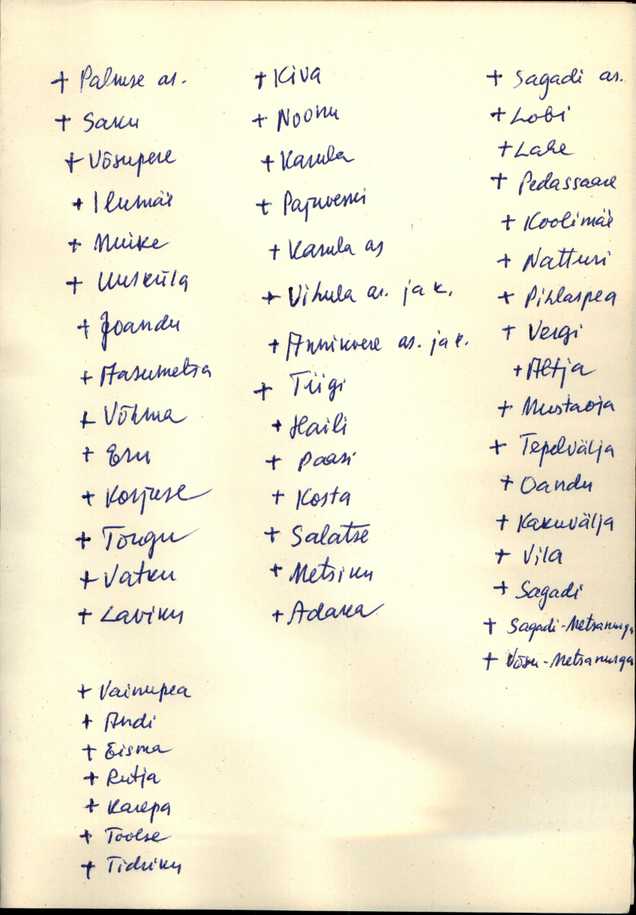 + Palmse as.
+ Saku
+ Võsupere
+ Ilumäe
+ Muike
+ Uusküla
+ Joandu
+ Aasumetsa
+ Võhma
+ Eru
+ Korjuse
+ Tõugu
+ Vatku
+ Laviku
+ Vainupea
+ Andi
+ Eisma
+ Rutja
+ Karepa
+ Toolse
+ Tidriku
+ Kiva
+ Noonu
+ Karula
+ Pajuveski
+ Karula as
+ Vihula as. ja k.
+ Annikvere as. ja k.
+ Tiigi
+ Haili
+ Paasi
+ Kosta
+ Salatse
+ Metsiku
+ Adaka
+ Sagadi as.
+ Lobi
+ Lahe
+ Pedassaare
+ Koolimäe
+ Natturi
+ Pihlaspea
+ Vergi
+ Altja
+ Mustaoja
+ Tepelvälja
+ Oandu
+ Kakuvälja
+ Vila
+ Sagadi
+ Sagadi-Metsanurga
+ Võsu-Metsanurga